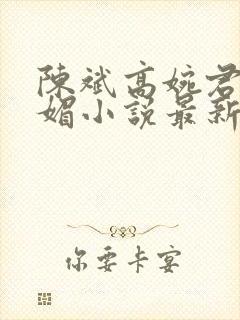 陳斌高婉君
媚小說最新
你要卡宴